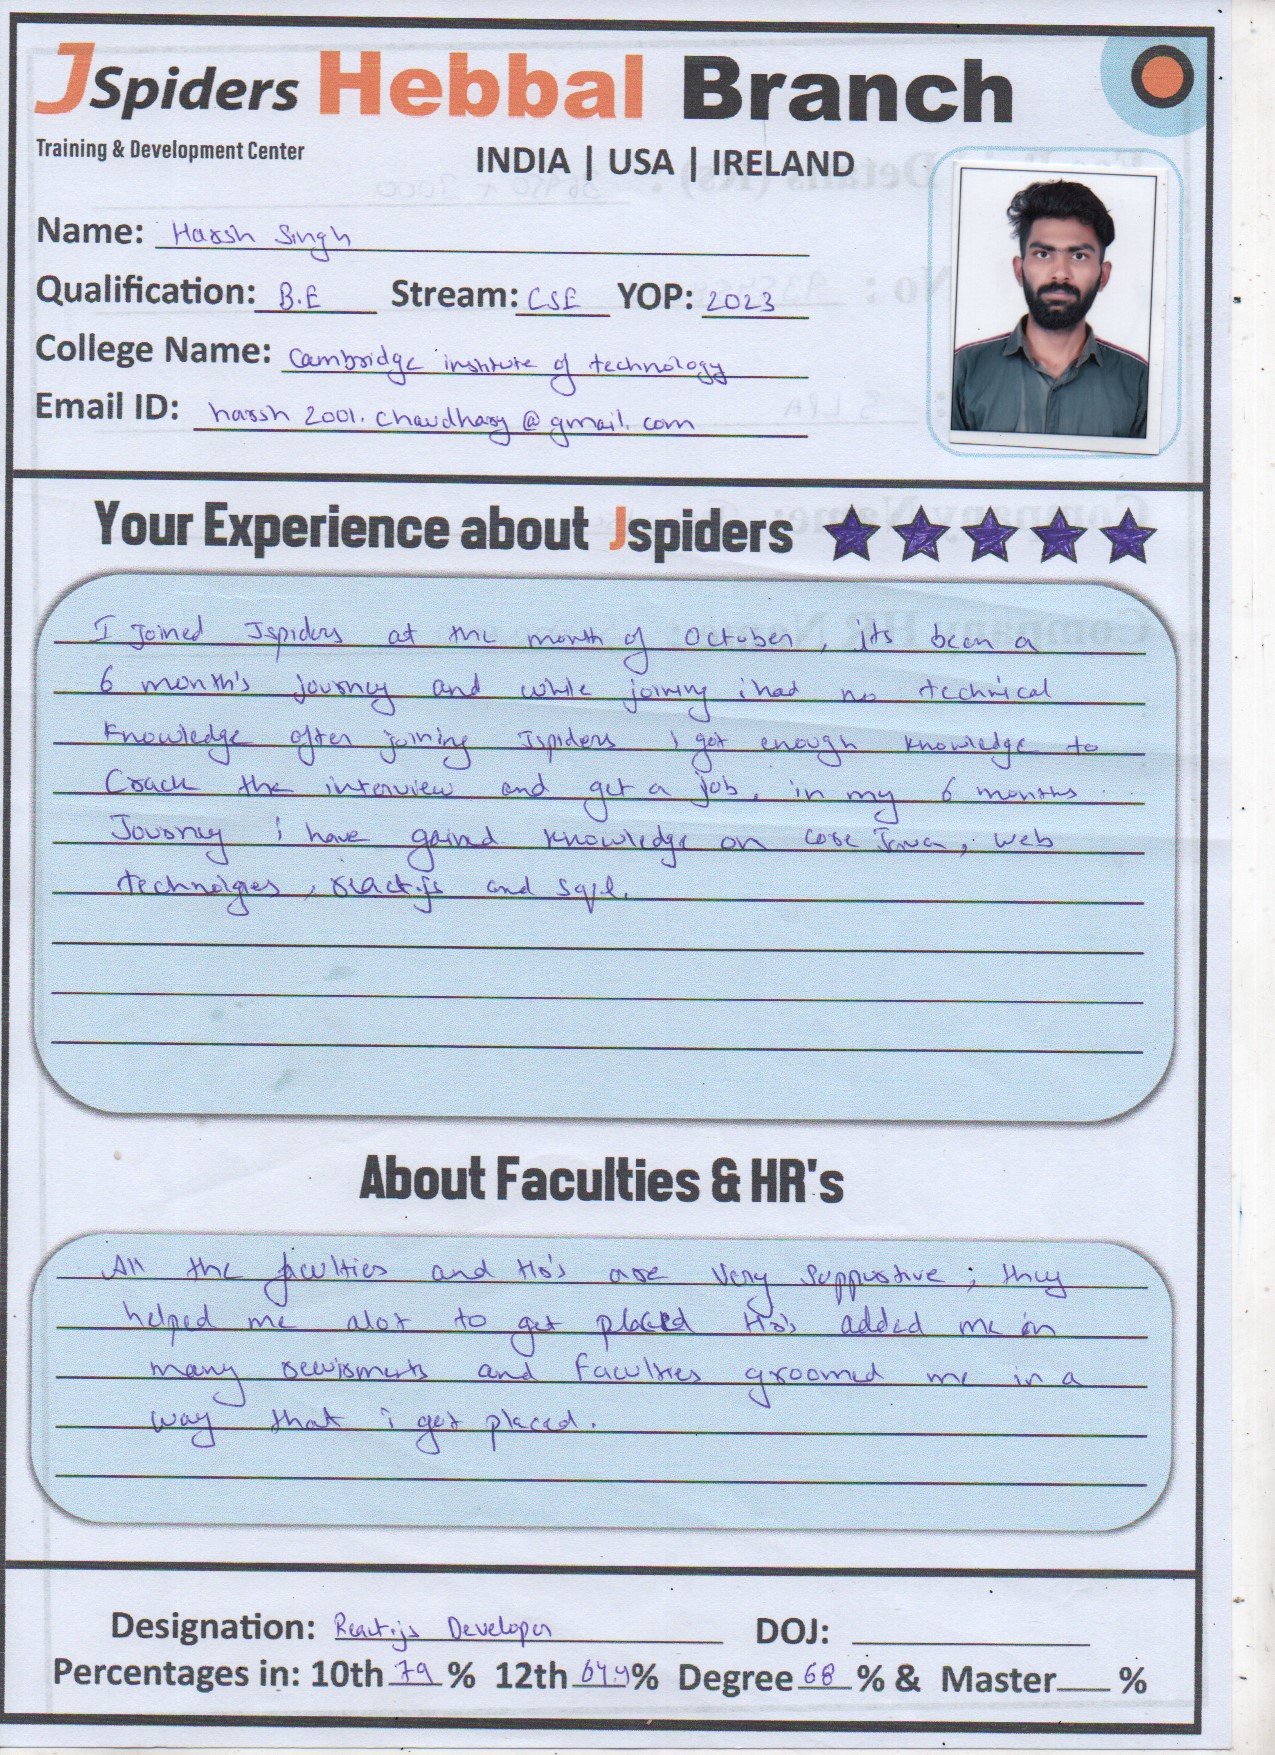 JSpiders Hebbal Branch
Training & Development Center
INDIA | USA | IRELAND
Name: Harsh Singh
Qualification: B.E Stream: CSE YOP: 2023
College Name: Cambridge institute of technology
Email ID: harsh 2001. chaudhary @ gmail. com
Your Experience about Jspiders
I Joined Jspiders at the month of October, its been a
6 month's journey and while joining i had no technical
knowledge after joining Jspiders i got enough knowledge to
Crack the interview and get a job. in my 6 months
Journey i have gained knowledge on core Java, web
technolgies, react.js and sql.
About Faculties & HR's
All the faculties and Hr's are Very Supportive, they
helped me alot to get placed Hr's added me in
many and faculties groomed me in a
way that i got placed.
Designation: React.js Developer DOJ:
Percentages in: 10th 79 % 12th % Degree 68 % & Master %